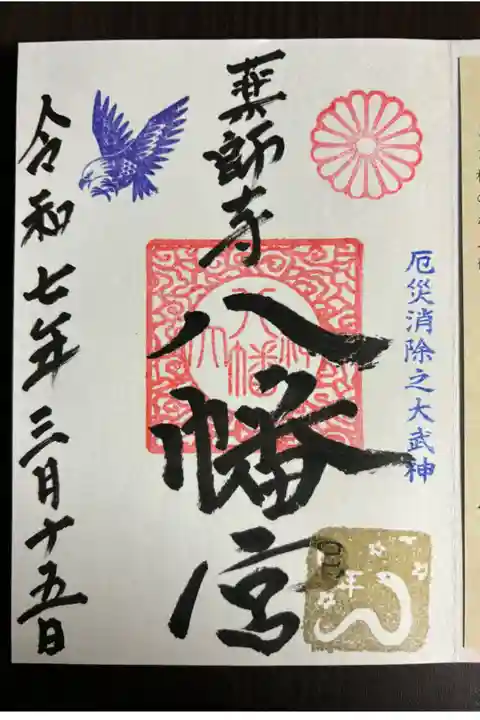 厄災消除之大武神
薬師寺
八幡宮
令和七年三月十五日